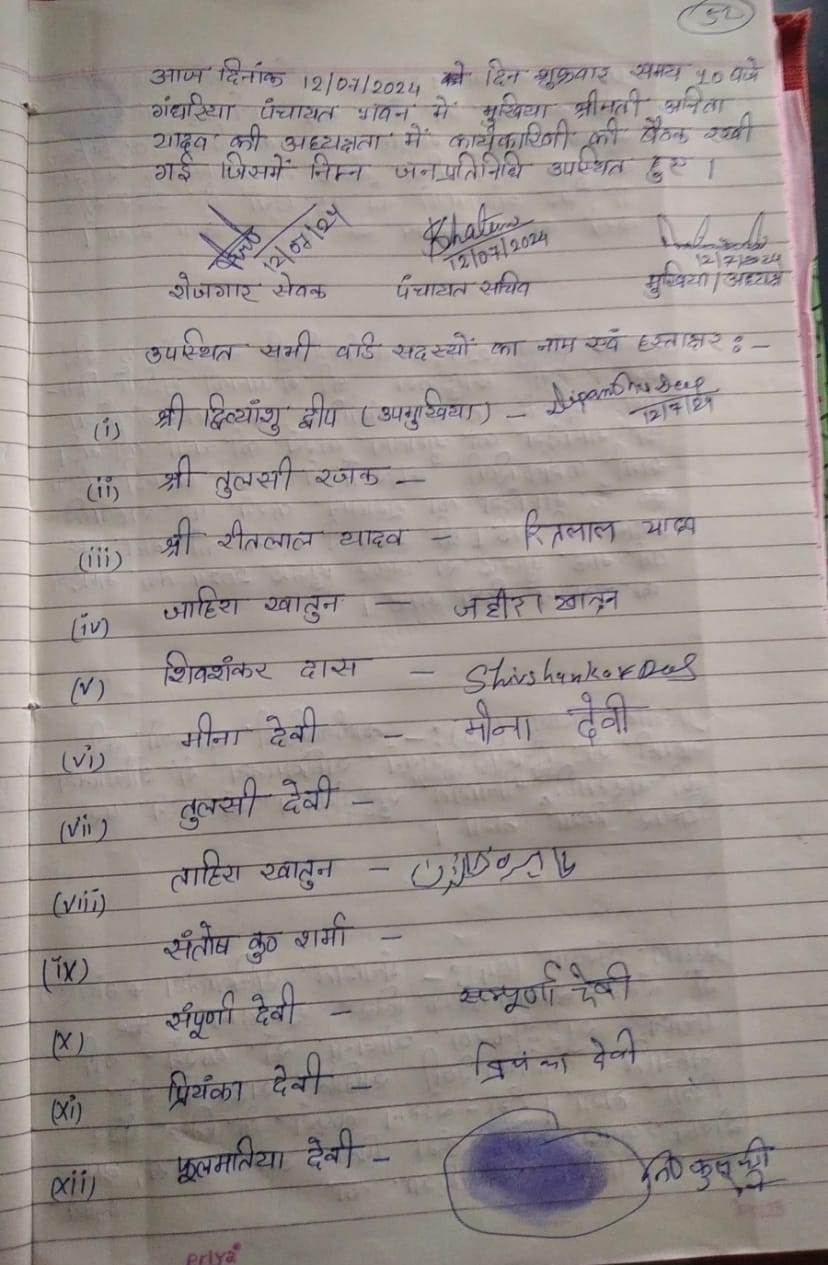 52
आज दिनांक 12/07/2024 को दिन शुक्रवार समय 10 बजे
गंधारिया पंचायत भवन में मुखिया श्रीमती अनिता
यादव की अध्यक्षता में कार्यकारिणी की बैठक रखी
गई जिसमें निम्न जनप्रतिनिधि उपस्थित हुए ।
12/07/24 Khatun 12/07/2024 12/7/2024
रोजगार सेवक पंचायत सचिव मुखिया/अध्यक्ष
उपस्थित सभी वार्ड सदस्यों का नाम एवं हस्ताक्षर :-
(i) श्री दिव्यांशु द्वीप (उपमुखिया) - Dipanshu Deep
12/7/24
(ii) श्री तुलसी रजक -
(iii) श्री रीतलाल यादव - रितलाल यादव
(iv) जाहिरा खातुन - जहीरा खातून
(v) शिवशंकर दास - Shivshankar Das
(vi) मीना देवी - मीना देवी
(vii) तुलसी देवी -
(viii) ताहिरा खातुन -
(ix) संतोष कु० शर्मा -
(x) संपूर्णा देवी - सम्पूर्णा देवी
(xi) प्रियंका देवी - प्रियंका देवी
(xii) फूलमतिया देवी -
Priya